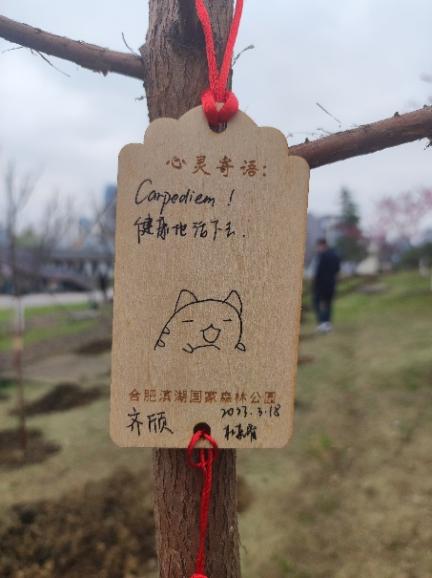 心灵寄语:
Carpediem!
健康地活下去.
合肥滨湖国家森林公园
齐颀 2023.3.18